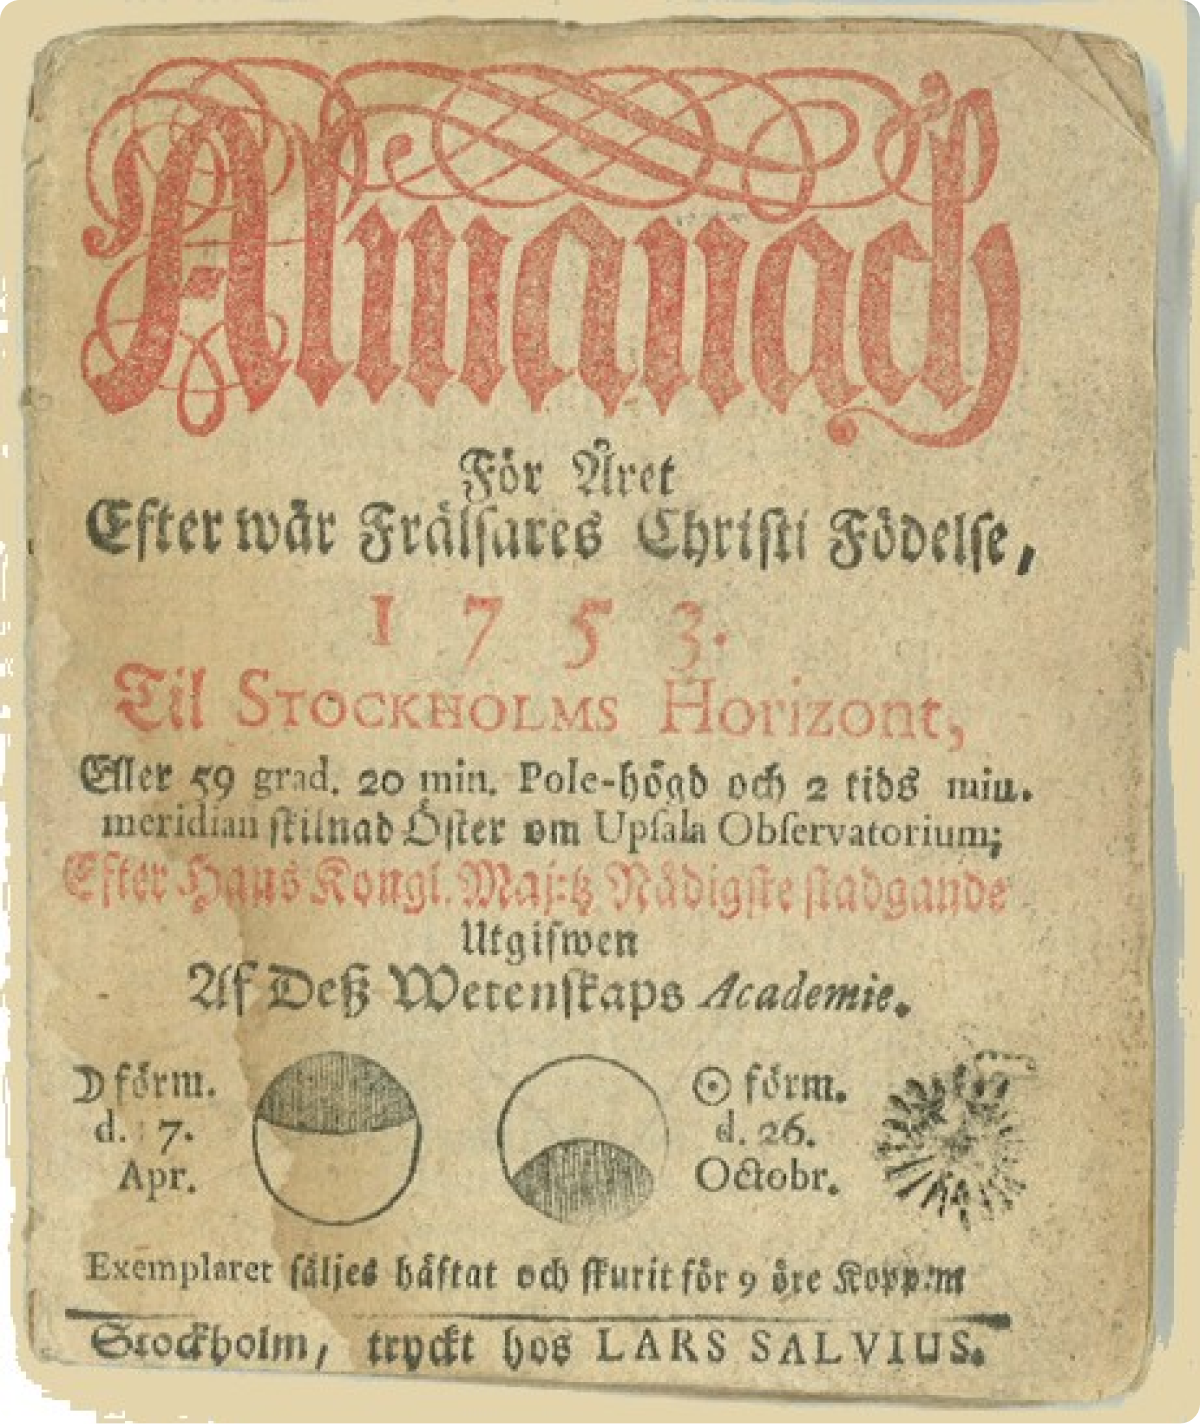 Almanach
För Året
Efter wår Frälsares Christi Födelse,
1753.
Til STOCKHOLMS Horizont,
Eller 59 grad. 20 min. Pole-högd och 2 tids min.
meridian skilnad Öster om Upsala Observatorium;
Efter Hans Kongl. Maj:tz Nådigste stadgande
Utgifwen
Af Deß Wetenskaps Academie.
☽ förm.
d. 7.
Apr.
☉ förm.
d. 26.
Octobr.
Exemplaret säljes häftat och skurit för 9 öre Kopp:mt
Stockholm, tryckt hos LARS SALVIUS.